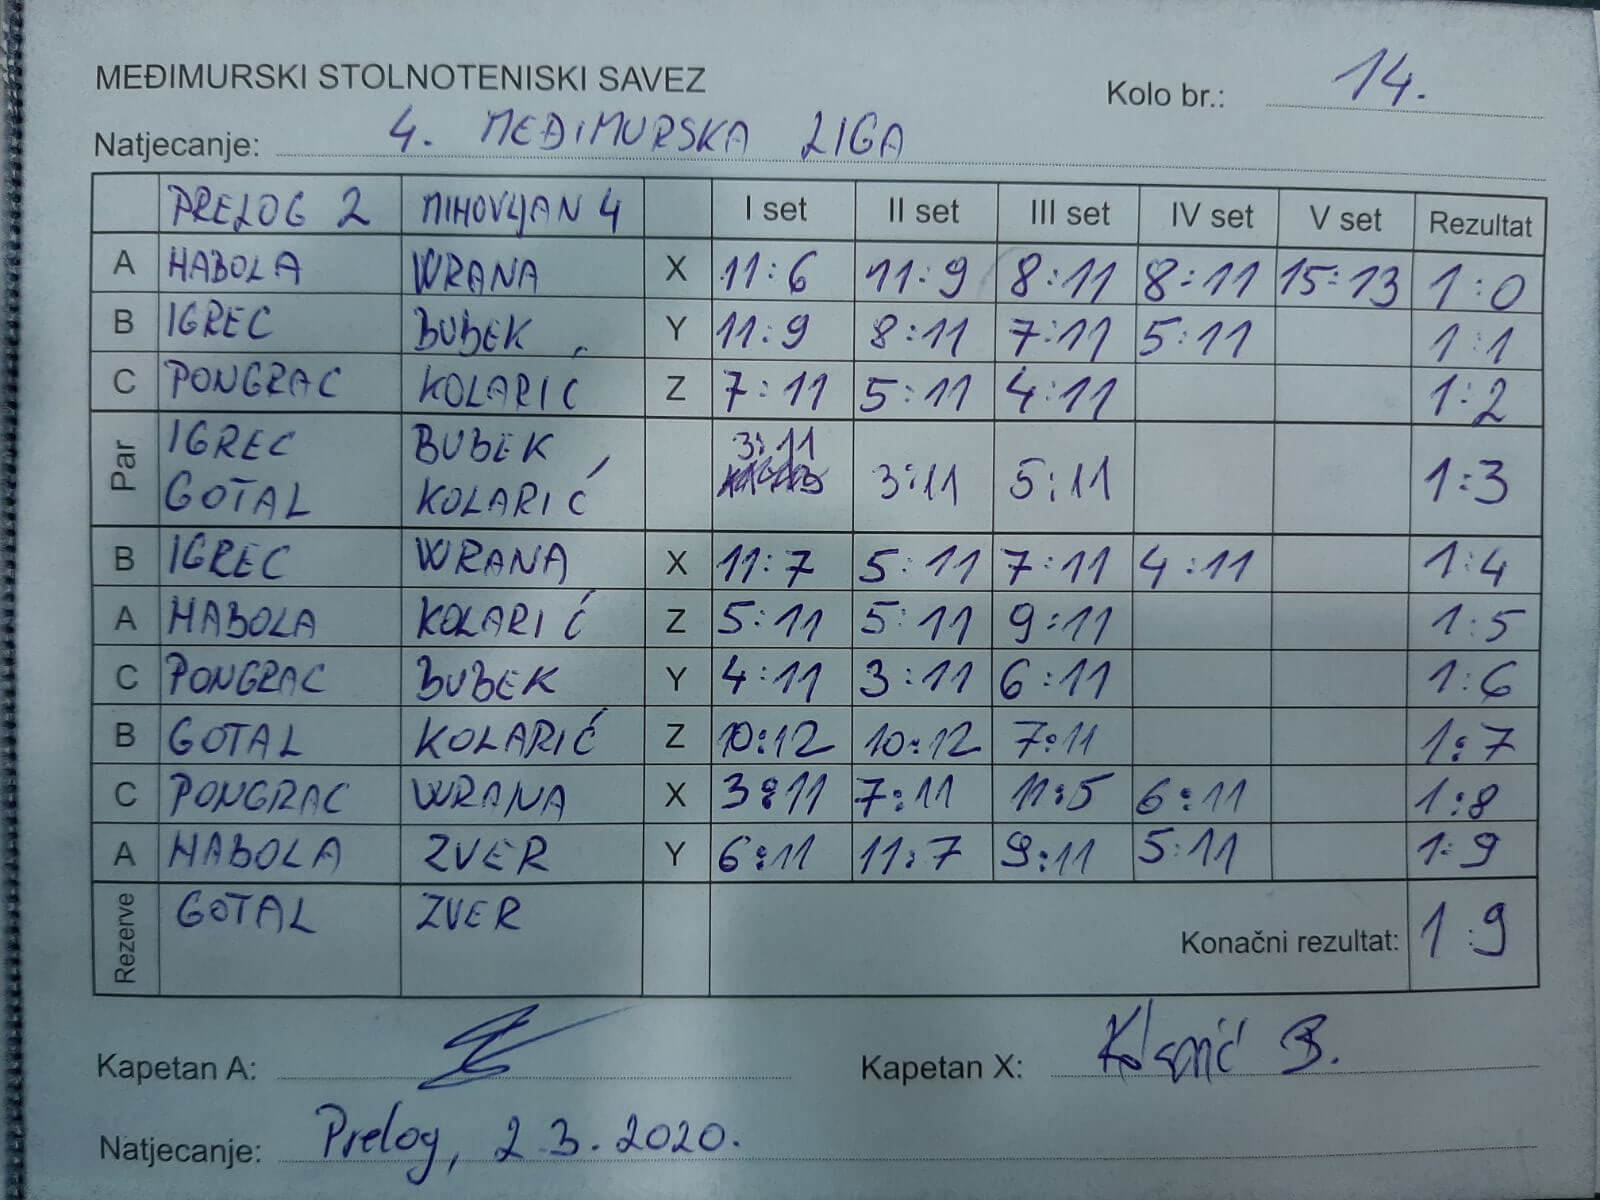 MEĐIMURSKI STOLNOTENISKI SAVEZ
Kolo br.: 14.
Natjecanje: 4. MEĐIMURSKA LIGA
PRELOG 2 MIHOVLJAN 4 I set II set III set IV set V set Rezultat
A HABOLA WRANA X 11:6 11:9 8:11 8:11 15:13 1:0
B IGREC BUBEK Y 11:9 8:11 7:11 5:11 1:1
C PONGRAC KOLARIĆ Z 7:11 5:11 4:11 1:2
Par IGREC BUBEK 3:11
GOTAL KOLARIĆ 3:11 5:11 1:3
B IGREC WRANA X 11:7 5:11 7:11 4:11 1:4
A HABOLA KOLARIĆ Z 5:11 5:11 9:11 1:5
C PONGRAC BUBEK Y 4:11 3:11 6:11 1:6
B GOTAL KOLARIĆ Z 10:12 10:12 7:11 1:7
C PONGRAC WRANA X 3:11 7:11 11:5 6:11 1:8
A HABOLA ZVER Y 6:11 11:7 9:11 5:11 1:9
Rezerve GOTAL ZVER
Konačni rezultat: 1:9
Kapetan A:
Kapetan X: B.
Natjecanje: Prelog, 2.3.2020.